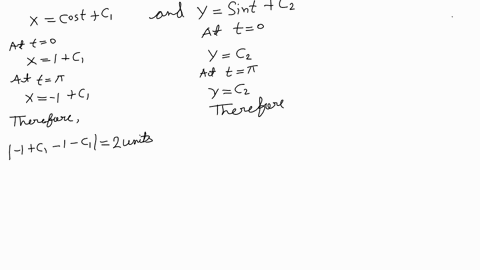 x = Cost + C₁ and Y = Sint + C₂
At t=0
x = 1 + C₁
At t = π
x = -1 + C₁
Therefore,
|-1 + C₁ - 1 - C₁| = 2 units
At t=0
Y = C₂
At t = π
y = C₂
Therefore